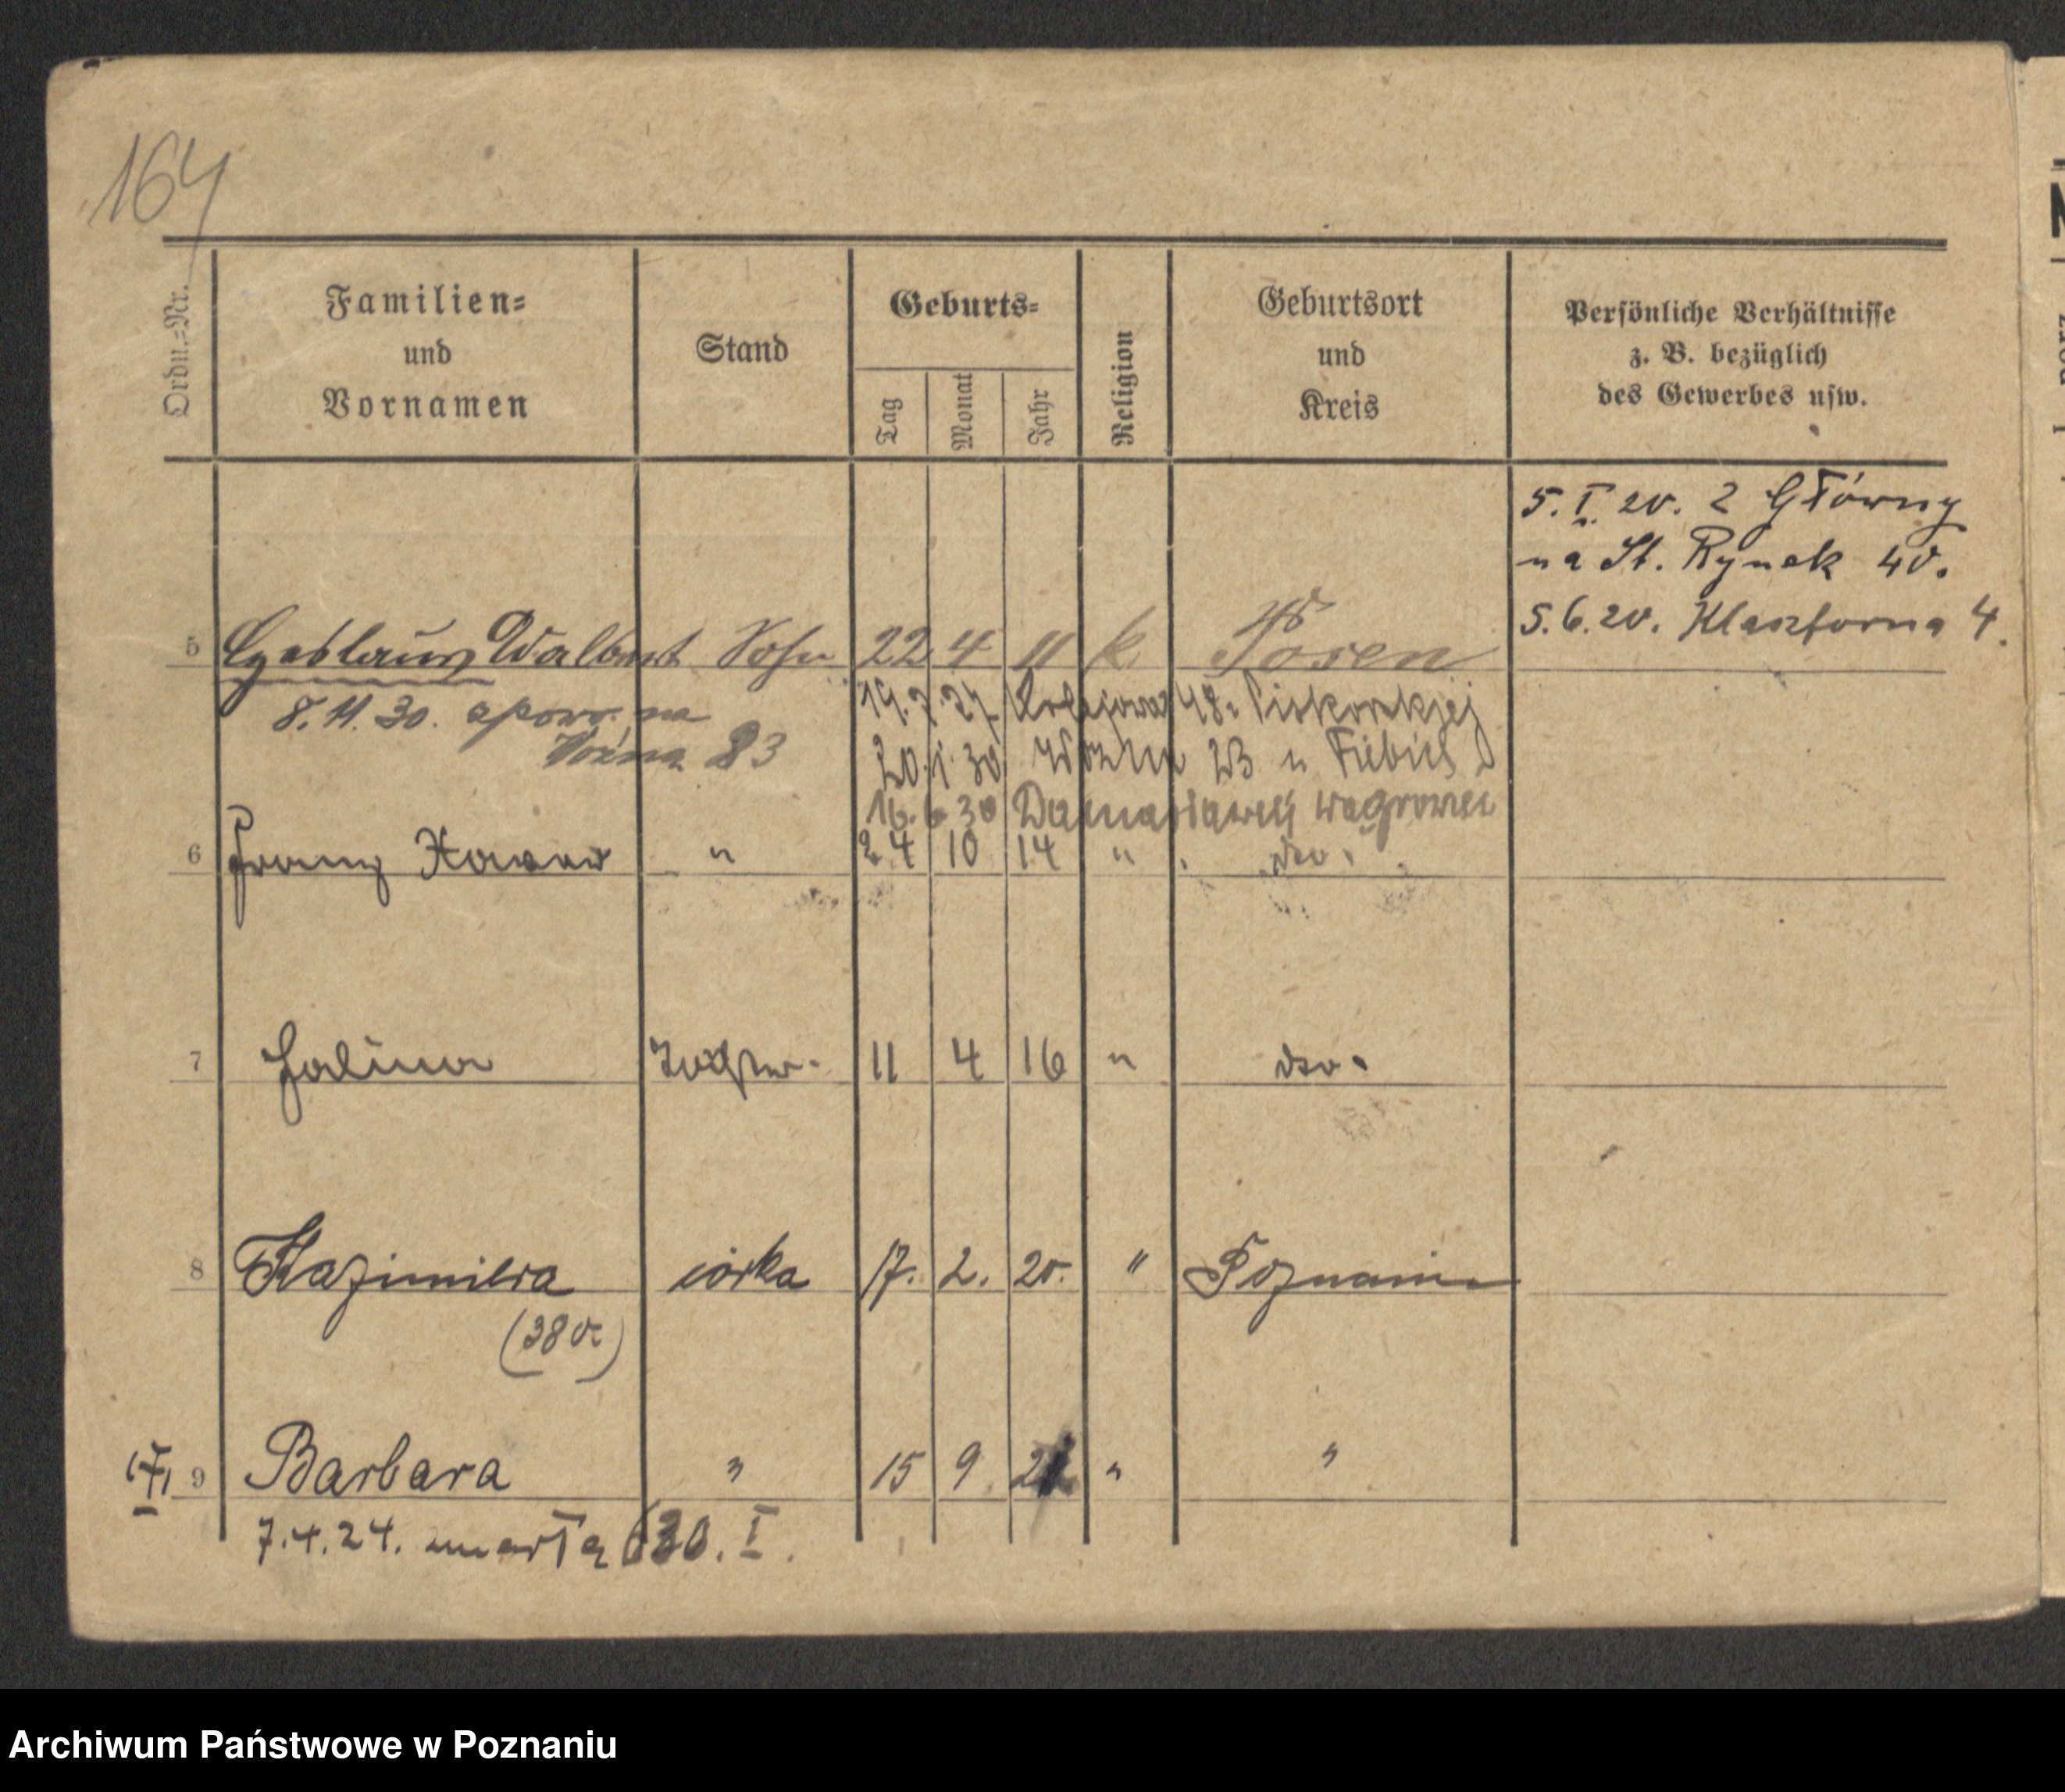 164
Ordn.-Nr.
Familien-
und
Vornamen
Stand
Geburts-
Tag
Monat
Jahr
Religion
Geburtsort
und
Kreis
Persönliche Verhältnisse
z. B. bezüglich
des Gewerbes usw.
5. I. 20. z Główny
na St. Rynek 40.
5.6.20. Klasztorna 4.
5 Czeslaus Walbert Sohn 22 4 11 k. Posen
8.11.30. na
Woźna 23
19. 7. 27 Kolejowa 48
20. 1. 30 Woźna 23 u Fiebich
16. 6. 30 Damasławek Wągrowiec
6 Franz " 24 10 14 " dto.
7 Halina Tochter. 11 4 16 " dto.
8 Kazimiera córka 17. 2. 20. " Poznaniu
(380.)
9 Barbara " 15 9 " "
7.4.24. umarła 30. I.
Archiwum Państwowe w Poznaniu